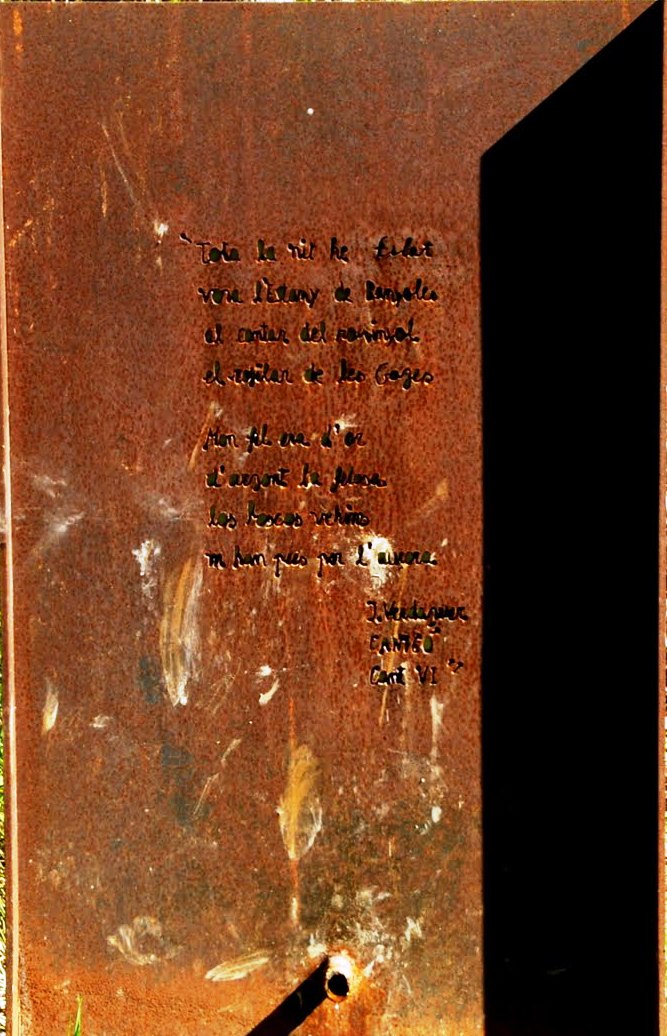 "Tota la nit he filat
vora l'Estany de Banyoles
al cantar del rossinyol
el refilar de les Goges
Mon fil era d'or
d'argent la filosa
los boscos vehins
m han pres per l'aurora
J. Verdaguer
CANIGÓ
Cant VI"